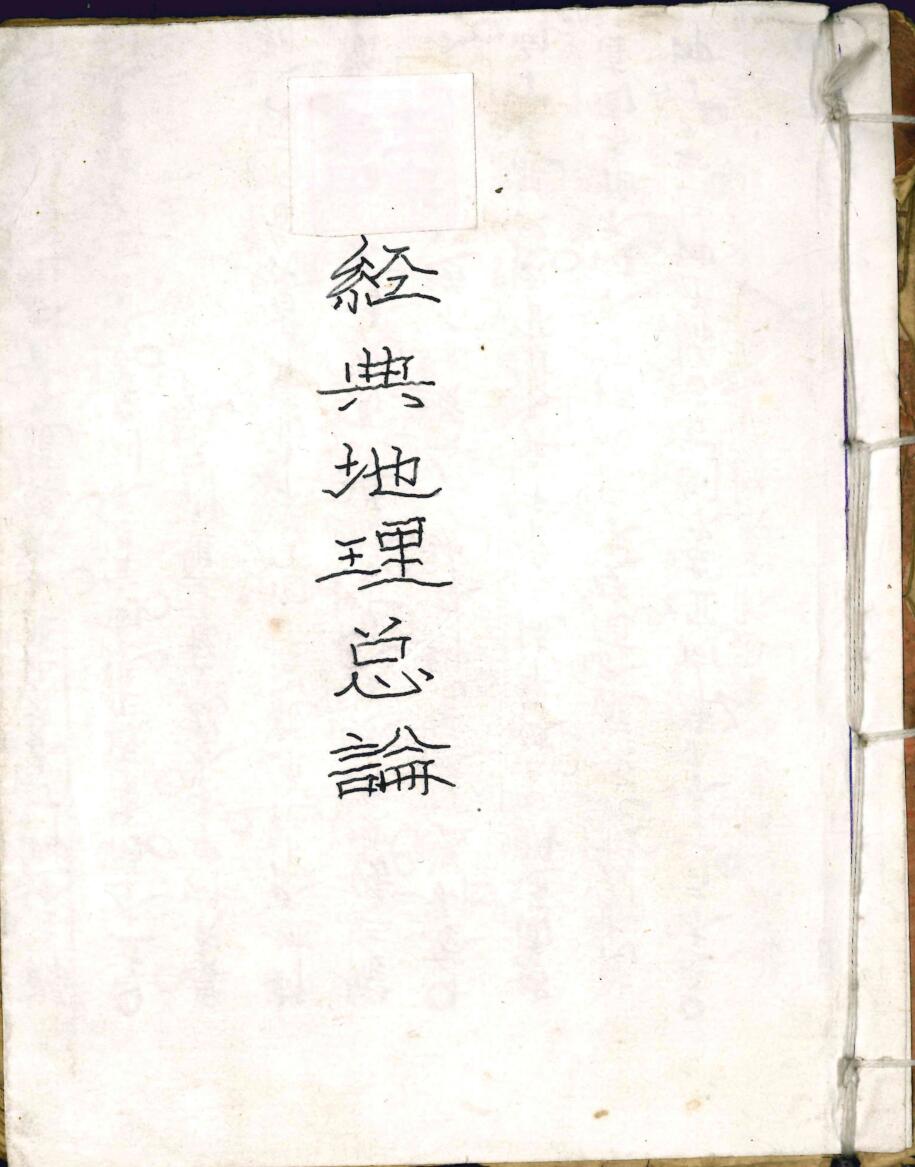 経典地理总論